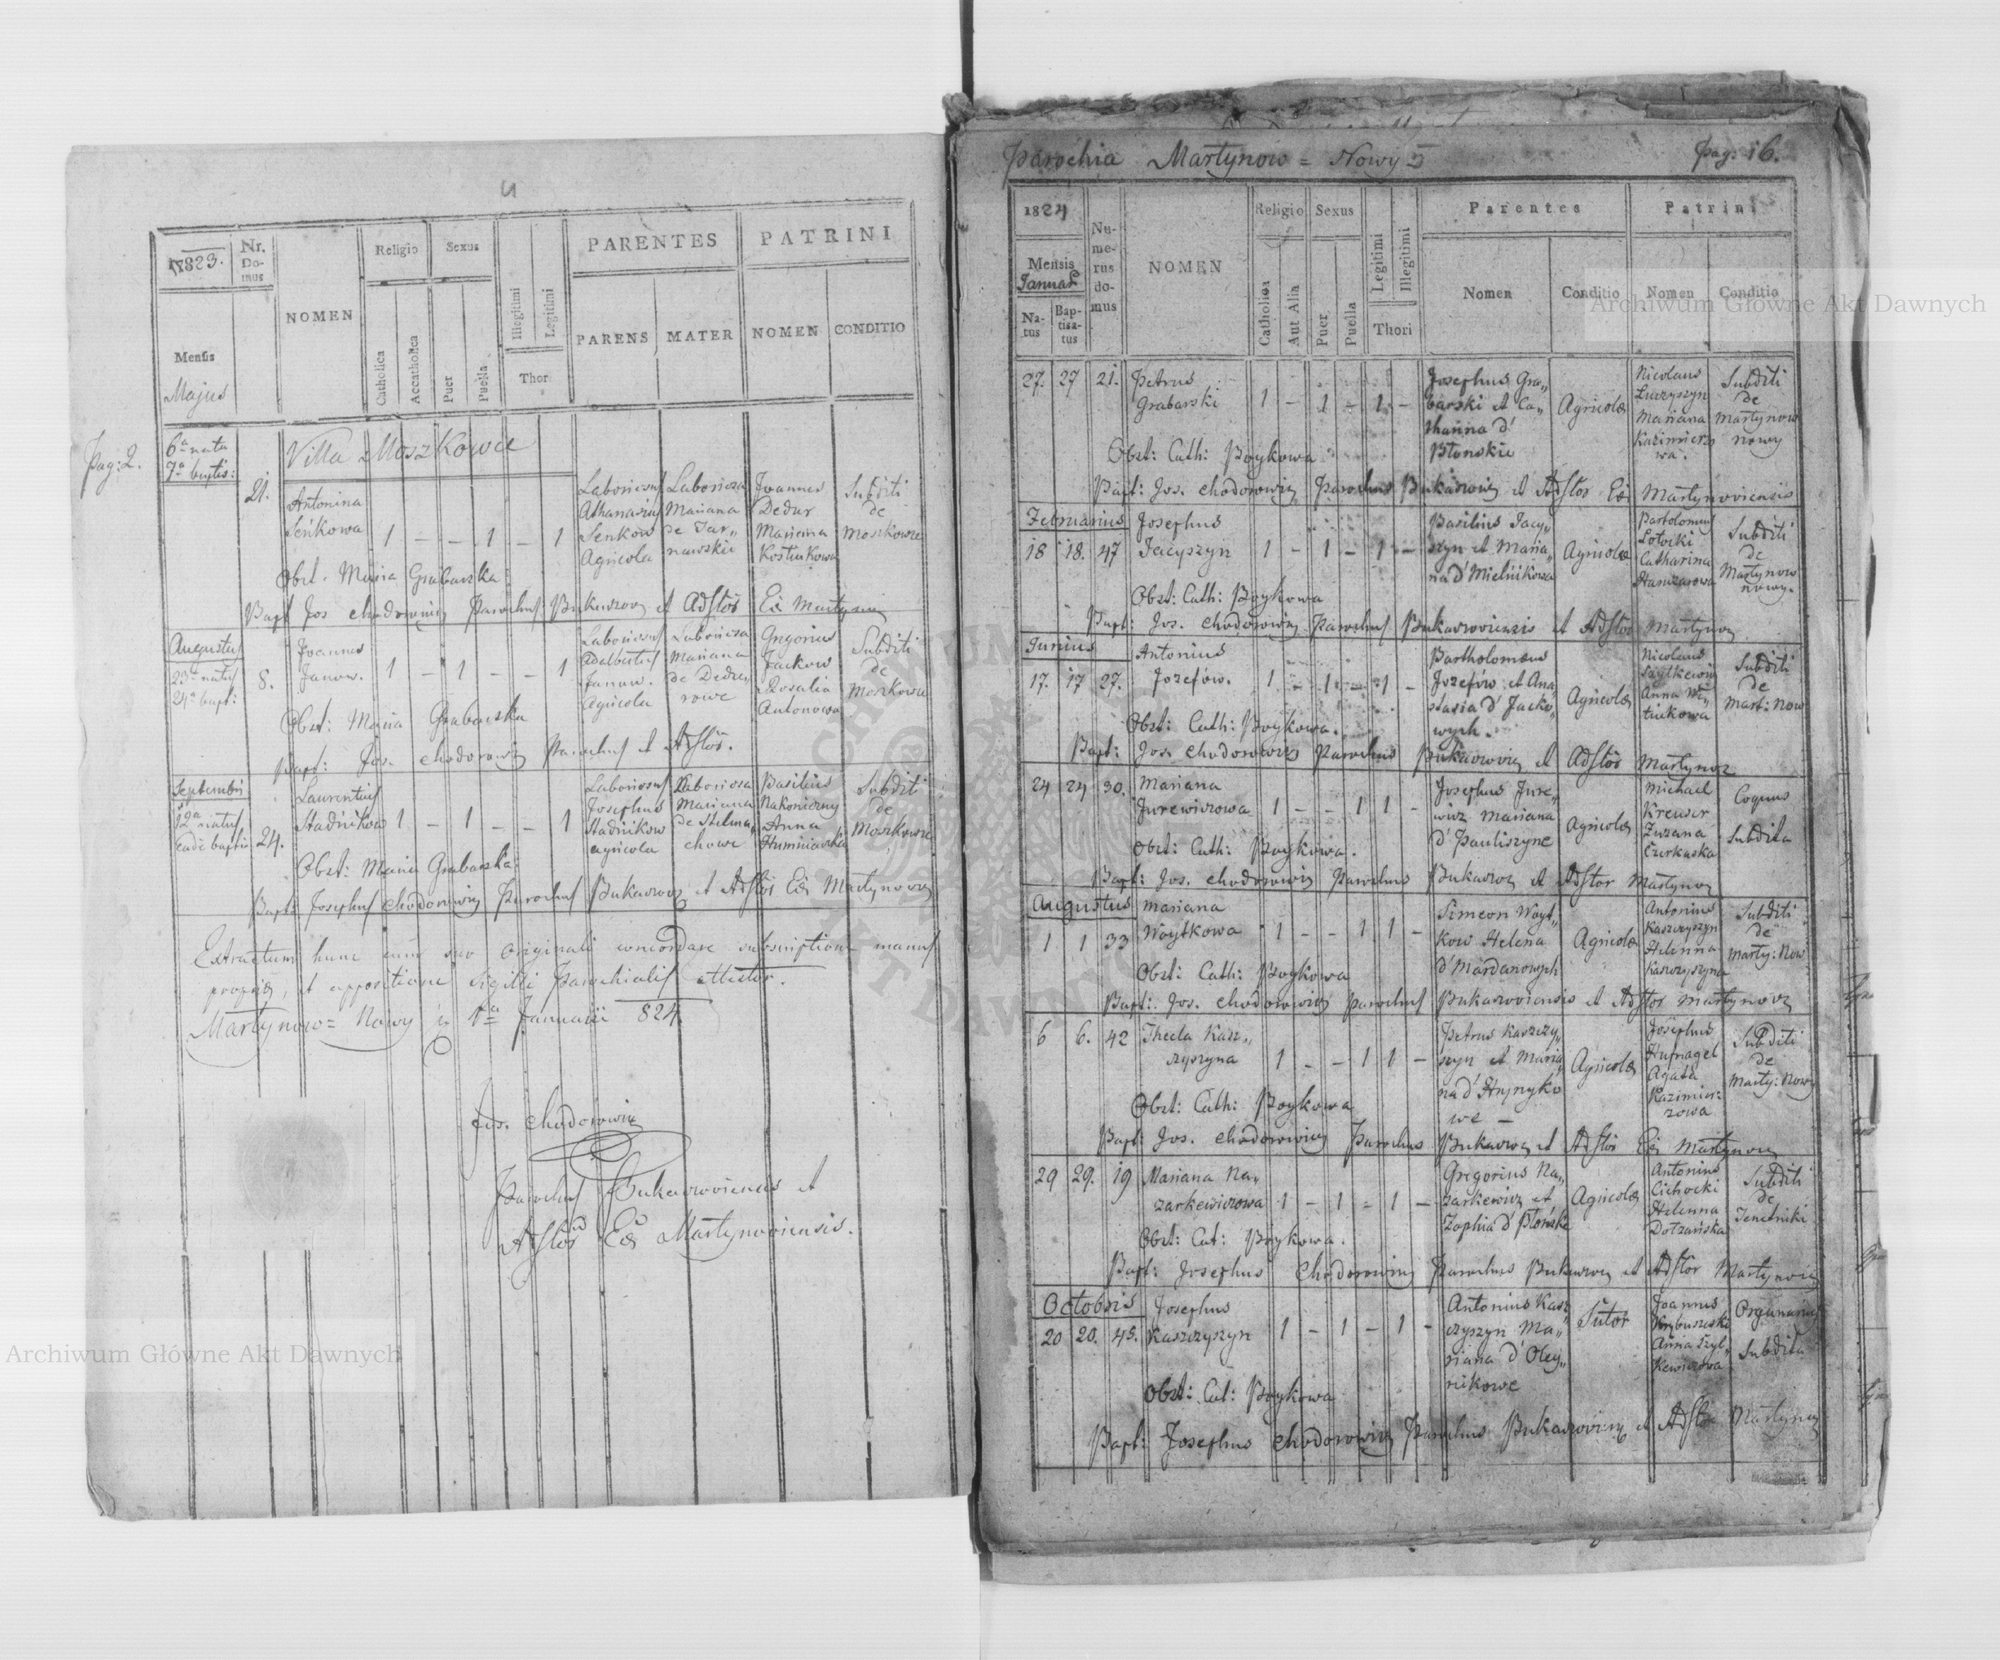 4
1823.
Nr. Domus
NOMEN
Religio
Sexus
Illegitimi
Legitimi
PARENTES
PATRINI
Mensis
Majus
Catholica
Accatholica
Puer
Puella
Thor
PARENS
MATER
NOMEN
CONDITIO
Pag: 2.
6a nata
7a baptis:
21.
Villa Moszkowce
Antonina
Senkowa
1 – – 1 – 1
Laboriosus
Athanasius
Senkow
Agricola
Laboriosa
Mariana
de Tar„
nawskie
Joannes
Dedur
Mariana
Kostiukowa
Subditi
de
Moszkowce
Obst. Maria Grabarska
Bapt Jos Chodorowicz Parochus Bukaszov et Adstor Ecc Martynov
Augustus
23a natus
24a bapt:
8.
Joannes
Janow.
1 – 1 – – 1
Laboriosus
Adalbertus
Janow.
agricola
Laboriosa
Mariana
de Dedu
rowe
Grigorius
Jackow
Rosalia
Antonowa
Subditi
de
Moszkowce
Obst: Maria Grabarska
Bapt: Jos. Chodorowicz Parochus et Adstor.
Septembris
12a natus
eadē baptis
24.
Laurentius
Stadnikow
1 – 1 – – 1
Laboriosus
Josephus
Stadnikow
agricola
Laboriosa
Mariana
de Stelma„
chowe
Basilius
Nakonieczny
Anna
Huminiarska
Subditi
de
Moszkowce
Obst: Maria Grabarska
Bapt: Josephus Chodorowicz Parochus Bukaszov et Adstor Ecc Martynov
Extractum hunc cum suo originali concordare subscriptione manus
propria, et appositione sigilli Parochialis attestor.
Martynow = Nowy 1a Januarii 824.
Jos. Chodorowicz
Parochus Bukaszoviensis et
Adstor Ecc Martynoviensis.
Parochia Martynow = Nowy
pag: 16.
1824
Mensis
Januar
Natus
Baptisatus
Numerus domus
NOMEN
Religio
Sexus
Catholica
Aut Alia
Puer
Puella
Legitimi
Illegitimi
Thori
Parentes
Nomen
Conditio
Patrini
Nomen
Conditio
27. 27 21.
Petrus
Grabarski
1 – 1 – 1 –
Josephus Gra„
barski et Ca„
tharina d'
Błonskie
Agricola
Nicolaus
Luczyszyn
Mariana
Kazimierz
wa.
Subditi
de
Martynow
nowy
Obst: Cath: Boykowa
Bapt: Jos. Chodorowicz Parochus Bukaszov et Adstor Ecc Martynoviensis
Februarius
18 18. 47
Josephus
Jacyszyn
1 – 1 – 1 –
Basilius Jacy„
szyn et Maria„
na d' Mielnikowa
Agricola
Bartolomeus
Łotocki
Catharina
Subditi
de
Martynow
nowy.
Obst: Cath: Boykowa
Bapt: Jos. Chodorowicz Parochus Bukaszoviensis et Adstor Martynov
Junius
17. 17 27.
Antonius
Jozefow.
1 – 1 – 1 –
Bartholomeus
Jozefow et Ana„
stasia d' Jacko„
wych.
Agricola
Nicolaus
Szytkewicz
Anna
Subditi
de
Mart: Now
Obst: Cath: Boykowa.
Bapt: Jos. Chodorowicz Parochus Bukaszov et Adstor Martynov
24 24 30.
Mariana
Jurewiczowa
1 – – 1 1 –
Josephus Jure„
wicz Mariana
d' Pauliszyne
Agricola
Michael
Kreuser
Zuzana
Czerkaska
Coquus
Subdita
Obst: Cath: Boykowa.
Bapt: Jos. Chodorowicz Parochus Bukaszov et Adstor Martynov
Augustus
1 1 33
Mariana
Woytkowa
1 – – 1 1 –
Simeon Woyt„
kow Helena
d' Mardanowych
Agricola
Antonius
Kaszczyszyn
Helenna
Kaszczyszyna
Subditi
de
Marty: Now
Obst: Cath: Boykowa
Bapt: Jos. Chodorowicz Parochus Bukaszoviensis et Adstor Martynov
6 6. 42
Thecla Kasz„
czyszyna
1 – – 1 1 –
Petrus Kaszczy„
szyn et Maria„
na d' Hrynyko
we –
Agricola
Josephus
Hufnagel
Agata
Kazimier:
zowa
Subditi
de
Marty: Now
Obst: Cath: Boykowa
Bapt: Jos. Chodorowicz Parochus Bukaszov et Adstor Ecc Martynov
29 29. 19
Mariana Na„
zarkewiczowa
1 – 1 – 1 –
Gregorius Na„
zarkewicz et
Zophia d' Błonske
Agricola
Antonius
Cichocki
Helenna
Dolzańska
Subditi
de
Tenetniki
Obst: Cat: Boykowa.
Bapt: Josephus Chodorowicz Parochus Bukaszov et Adstor Martynov
Octobris
20 20. 45.
Josephus
Kaszczyszyn
1 – 1 – 1 –
Antonius Kasz
czyszyn Ma„
riana d' Oley„
nikowe
Sutor
Joannes
Anna Szyt„
kewiczowa
Organarius
Subdita
Obst: Cat: Boykowa
Bapt: Josephus Chodorowicz Parochus Bukaszov et Adstor Martynov
Archiwum Główne Akt Dawnych
Archiwum Główne Akt Dawnych